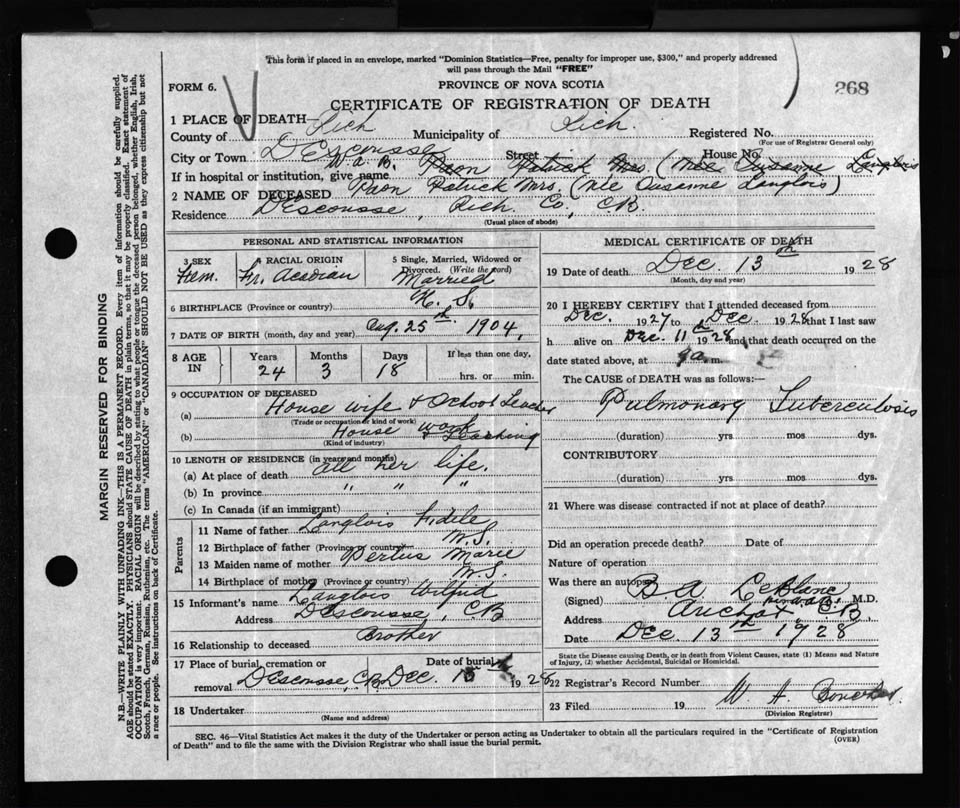 This form if placed in an envelope, marked "Dominion Statistics—Free, penalty for improper use, $300," and properly addressed
will pass through the Mail "FREE"
FORM 6.
PROVINCE OF NOVA SCOTIA
268
CERTIFICATE OF REGISTRATION OF DEATH
1 PLACE OF DEATH—
County of Rich Municipality of Rich. Registered No.
(For use of Registrar General only)
City or Town D'Escousse Street House No.
If in hospital or institution, give name Patrick Mrs. (Nee Susanne Langlois
2 NAME OF DECEASED Paon Patrick Mrs. (Nee Susanne Langlois)
Residence D'Escousse, Rich. Co, C.B.
(Usual place of abode)
PERSONAL AND STATISTICAL INFORMATION
3 SEX Fem. 4 RACIAL ORIGIN Fr. Acadian 5 Single, Married, Widowed or Divorced. (Write the word) Married
6 BIRTHPLACE (Province or country) N. S.
7 DATE OF BIRTH (month, day and year) Aug. 25th 1904,
8 AGE IN Years 24 Months 3 Days 18 If less than one day, hrs. or min.
9 OCCUPATION OF DECEASED
(a) House wife & School Teacher
(Trade or occupation or kind of work)
(b) House work & Teaching
(Kind of industry)
10 LENGTH OF RESIDENCE (in years and months)
(a) At place of death all her life.
(b) In province " " "
(c) In Canada (if an immigrant)
Parents
11 Name of father Langlois Fidele
12 Birthplace of father (Province or country) N.S.
13 Maiden name of mother Marie
14 Birthplace of mother (Province or country) N.S.
15 Informant's name Langlois Wilfrid
Address D'Escousse, C.B
16 Relationship to deceased Brother
17 Place of burial, cremation or Date of burial
removal D'Escousse, C.B. Dec. 15 1928
18 Undertaker
(Name and address)
MEDICAL CERTIFICATE OF DEATH
19 Date of death Dec. 13th 1928
(Month, day and year)
20 I HEREBY CERTIFY that I attended deceased from
Dec. 1927 to Dec. 1928 that I last saw
h alive on Dec. 11th 1928 and that death occurred on the
date stated above, at 9 a.m.
The CAUSE OF DEATH was as follows:—
Pulmonary Tuberculosis
(duration) yrs. mos. dys.
CONTRIBUTORY
(duration) yrs. mos. dys.
21 Where was disease contracted if not at place of death?
Did an operation precede death? Date of
Nature of operation
Was there an autopsy
(Signed) B A LeBlanc M.D.
Address Arichat C.B
Date Dec. 13th 1928
State the Disease causing Death, or in death from Violent Causes, state (1) Means and Nature
of Injury, (2) whether Accidental, Suicidal or Homicidal.
22 Registrar's Record Number
23 Filed 19 W. H.
(Division Registrar)
SEC. 46—Vital Statistics Act makes it the duty of the Undertaker or person acting as Undertaker to obtain all the particulars required in the "Certificate of Registration
of Death" and to file the same with the Division Registrar who shall issue the burial permit.
(OVER)
MARGIN RESERVED FOR BINDING
N.B.—WRITE PLAINLY WITH UNFADING INK—THIS IS A PERMANENT RECORD. Every item of information should be carefully supplied.
AGE should be stated EXACTLY. PHYSICIANS should STATE CAUSE OF DEATH in plain terms, so that it may be properly classified. Exact statement of
OCCUPATION is very important. RACIAL ORIGIN will be described by stating to what people or tongue the deceased person belonged, whether English, Irish,
Scotch, French, German, Russian, Ruthenian, etc. The terms "AMERICAN" or "CANADIAN" SHOULD NOT BE USED as they express citizenship but not
a race or people. See instructions on back of Certificate.